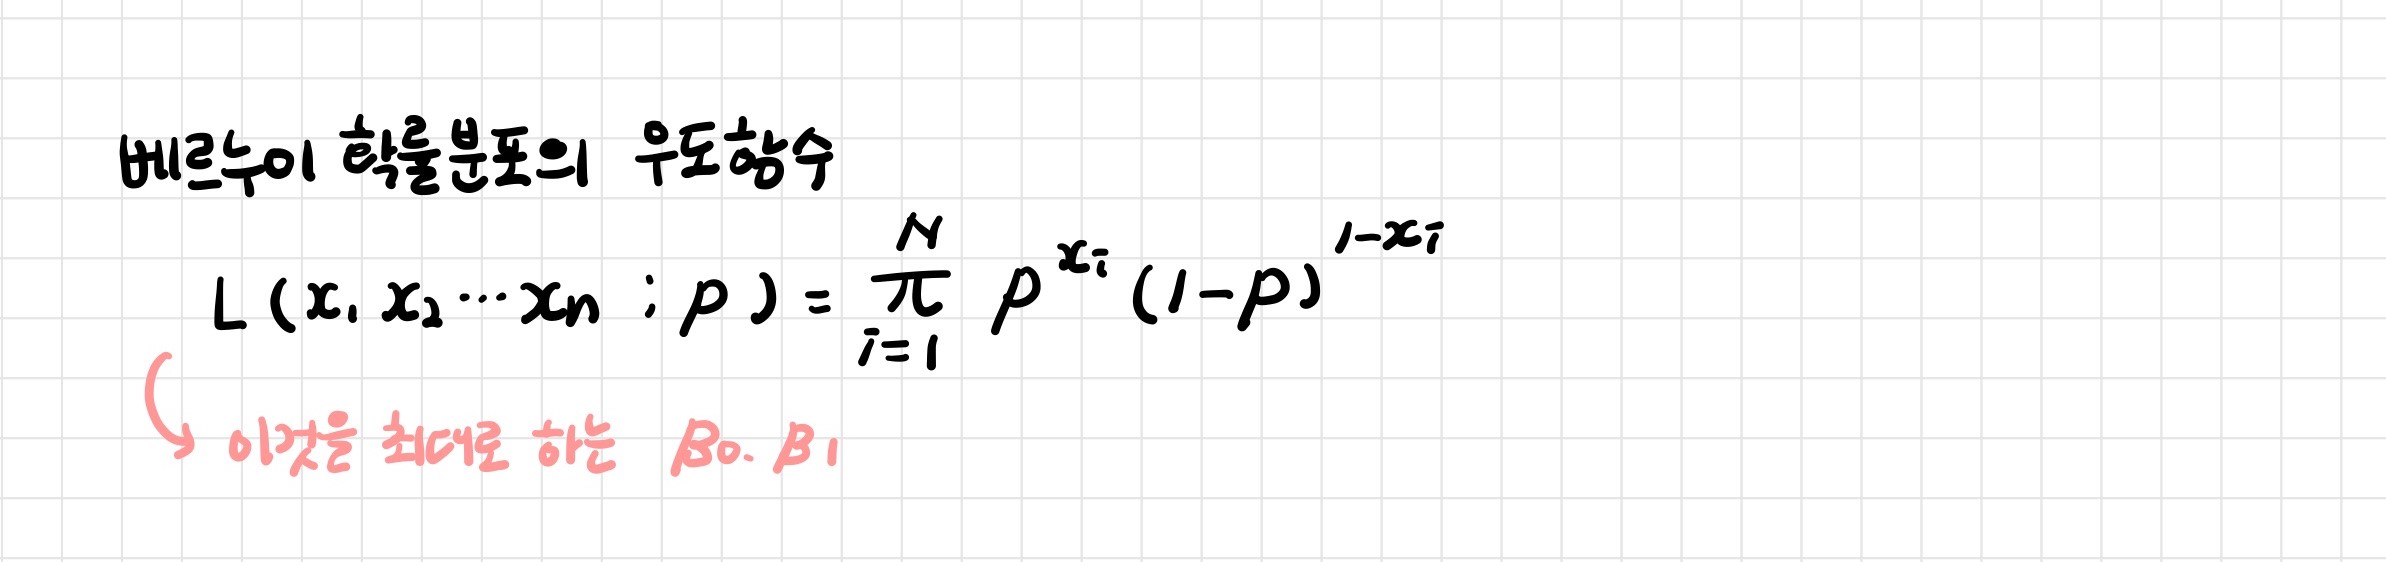 베르누이 확률분포의 우도함수
L(x₁ x₂ ⋯ xn ; p) = π_{i=1}^{N} p^{xi} (1-p)^{1-xi}
이것을 최대로 하는 β0. β1